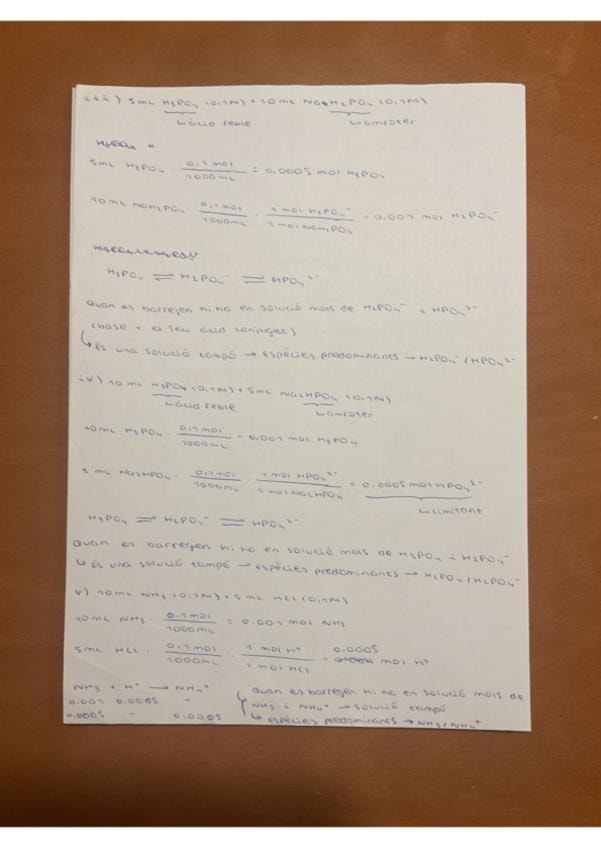 iii) 5 mL H₃PO₄ (0,1M) + 10 mL NaH₂PO₄ (0,1M)
↳ àcid feble ↳ amfòter
5 mL H₃PO₄ · 0,1 mol / 1000 mL = 0,0005 mol H₃PO₄
10 mL NaH₂PO₄ · 0,1 mol / 1000 mL · 1 mol H₂PO₄⁻ / 1 mol NaH₂PO₄ = 0,001 mol H₂PO₄⁻
H₃PO₄ ⇌ H₂PO₄⁻ ⇌ HPO₄²⁻
Quan es barregen hi ha en solució mols de H₂PO₄⁻ i HPO₄²⁻
(base + el seu àcid conjugat)
↳ És una solució tampó → espècies predominants → H₂PO₄⁻/HPO₄²⁻
iv) 10 mL H₃PO₄ (0,1M) + 5 mL Na₂HPO₄ (0,1M)
↳ àcid feble ↳ amfòter
10 mL H₃PO₄ · 0,1 mol / 1000 mL = 0,001 mol H₃PO₄
5 mL Na₂HPO₄ · 0,1 mol / 1000 mL · 1 mol HPO₄²⁻ / 1 mol Na₂HPO₄ = 0,0005 mol HPO₄²⁻
↳ limitant
H₃PO₄ ⇌ H₂PO₄⁻ ⇌ HPO₄²⁻
Quan es barregen hi ha en solució mols de H₃PO₄ i H₂PO₄⁻
↳ És una solució tampó → espècies predominants → H₃PO₄/H₂PO₄⁻
v) 10 mL NH₃ (0,1M) + 5 mL HCl (0,1M)
10 mL NH₃ · 0,1 mol / 1000 mL = 0,001 mol NH₃
5 mL HCl · 0,1 mol / 1000 mL · 1 mol H⁺ / 1 mol HCl = 0,0005 mol H⁺
NH₃ + H⁺ → NH₄⁺
0,001 0,0005 -
0,0005 - 0,0005
Quan es barregen hi ha en solució mols de
NH₃ i NH₄⁺ → solució tampó
↳ espècies predominants → NH₃/NH₄⁺